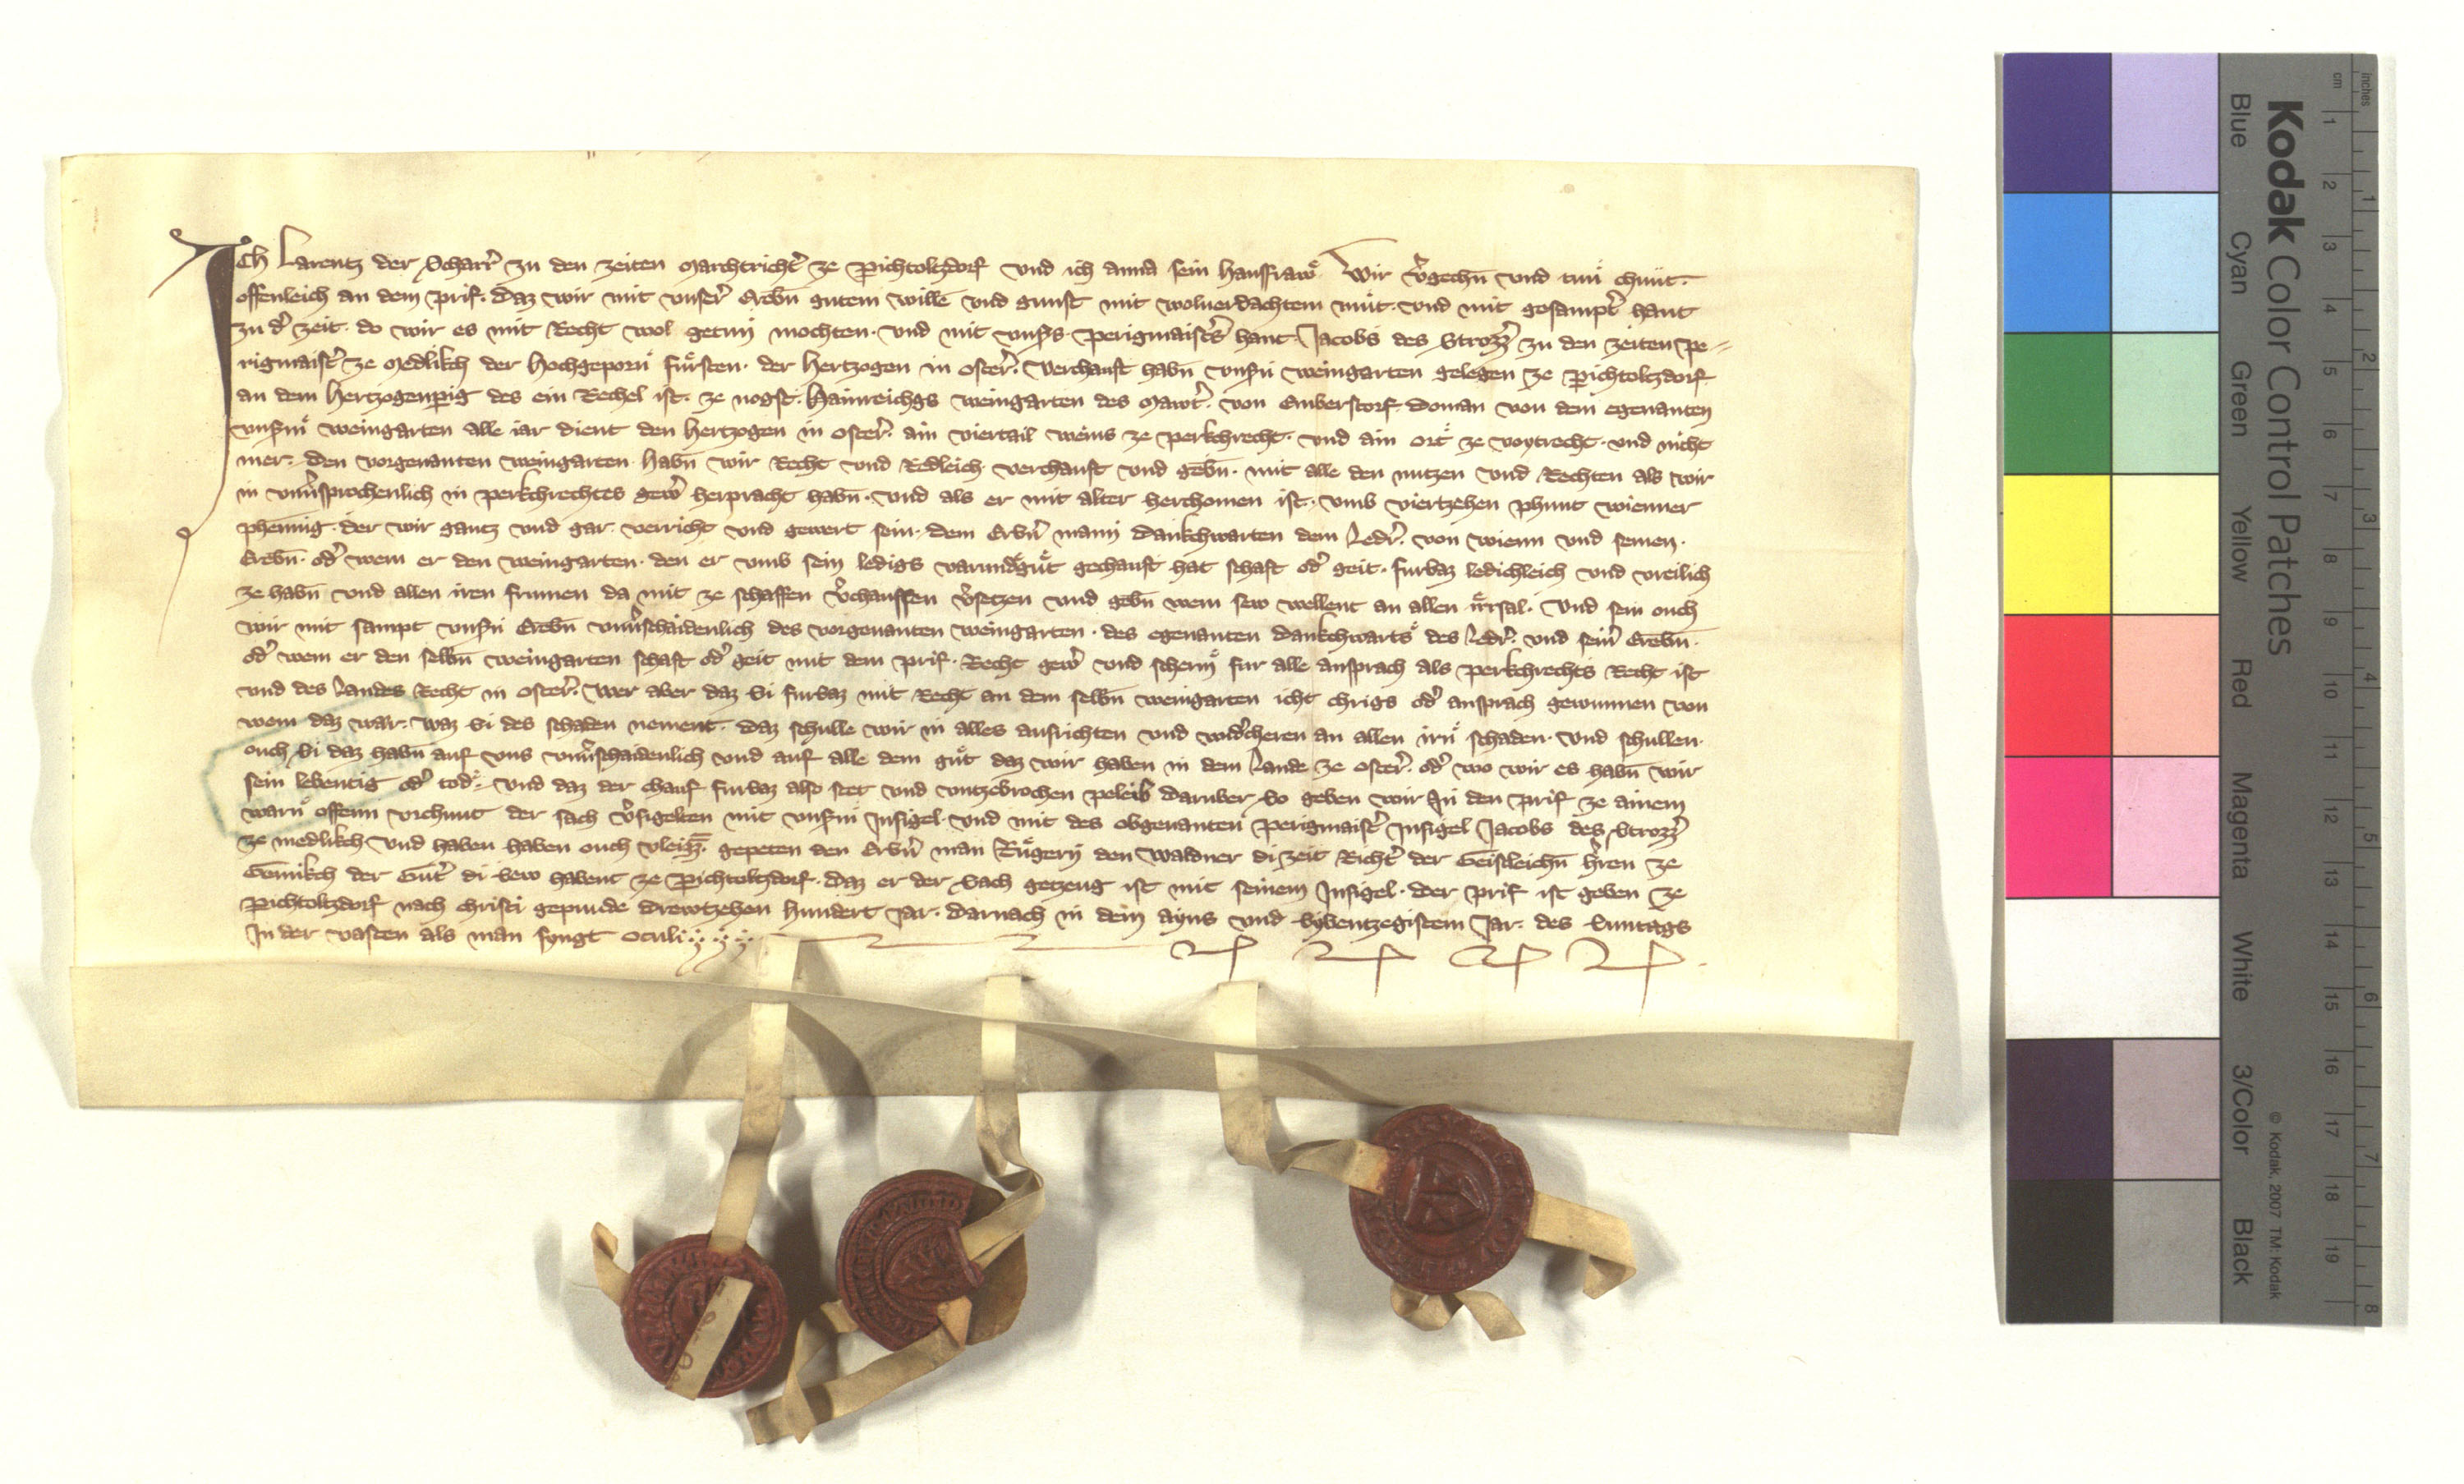 Ich Larentz der Scharr̾ zu den zeiten Marchtricht̾ ze Pichtoltzdorf vnd ich anna sein hausfrawͤ Wir v̾gechn̄ vnd tunͤ chunt·
offenleich an dem prif· daz wir mit vnser̾ Erebn̄ gutem willē vnd gunst mit wolverdachtem můt· vnd mit gesampt̾ hant
zu d̾ zeit· do wir es mit Recht wol getun mochten· vnd mit vnsers· perigmaist̾s hant· Jacobs des Strozz̾ zu den zeiten pe⸗
rigmaist̾ ze Medlikch der Hochgepornͤ fuͤrsten· der Hertzogen in oster̾· verchauft habn̄ vnsn̾ weingarten gelegen ze Pichtoltzdorf
an dem Hertzogenperig des ein Rechel ist· ze nogst· Hainreichgs weingarten des Mawt̾· von Emberstorf· doman von dem egenanten
vnsm̾ͤ weingarten alle iar dient den Hertzogen in oster̾· ain viertail weins ze perkchrecht· vnd ain ortͤ ze voytrecht· vnd nicht
mer· den vorgenanten weingarten· habn̄ wir Recht vnd Redleich· verchauft vnd gebn̄· mit alle den nutzen vnd Rechten als wir
in vnu̾sprochenlich in perkchrechtes gew̾ herpracht habn̄· vnd als er mit alter herchomen ist· vmb viertzehen phunt wienner
phennig· der wir gantz vnd gar· verricht vnd gewert sein· dem Erbn̾ mann Dankchwarten dem Ledr̾· von wienn vnd seinen·
Erebn̄· od̾ wem er den weingarten· den er vmb sein ledigs varundͤguͤt gechauft hat schaft od̾ geit· furbaz ledichleich vnd vreilich
ze habn̄ vnd allen iren frumen da mit ze schaffen v̾chauffen v̾setzen vnd gebn̄ wem sew wellent an allen irͤrsal· Vnd sein ouch
wir mit sampt vnsn̾ Erebn̄ vnu̾schaidenlich des vorgenanten weingarten· des egenanten Dankchwartsͤ des Ledr̾· vnd sein̾ Erebn̄·
od̾ wem er den selbn̄ weingarten schaft od̾ geit mit dem prif· Recht gew̾ vnd schermͤ fur alle ansprach als perkchrechts Recht ist
vnd des Landes Recht in oster̾· Wer aber daz si furbaz mit Recht an dem selbn̄ weingarten icht chrigs od̾ ansprach gewunnen von
wem daz war· waz si des schaden nement· daz schulle wir in alles ausrichten vnd wid̾cheren an allen irnͤ schaden· vnd schullen·
ouch si daz habn̄ auf vns vnu̾schaidenlich vnd auf alle dem guͤt daz wir haben in dem Lande ze oster̾· od̾ wo wir es habn̄ wir
sein lebentig od̾ todͤ· vnd daz der chauf furbaz also stet vnd vntzebrochen peleib daruber So geben wir In den prif ze ainem
warnͤ offenn vrchunt der sach v̾sigelten mit vnsm̾ Insigel· vnd mit des obgenanten perigmaist̾ Insigel Jacobs des Strozz̾
ze medlikch· vnd haben haben ouch vleizz̄· gepeten den Erbn̾ man Ruͤgern den waldner di zeit Richt̾ der Geistleichn̄ h̾ren ze
Gemnikch der Guͤt̾ di sew habent ze Pichtoltzdorf· daz er der Sach getzeug ist mit seinem Insigel· der prif ist geben ze
Pichtoltzdorf nach christi gepurde drewtzehen hundert Jar· darnach in dem ayns vnd Sybentzegistem Jar· des Suntags
In der vasten als man syngt Oculi
Kodak Color Control Patches
Blue Cyan Green Yellow Red Magenta White 3/Color Black
© Kodak, 2007 TM: Kodak
cm 1 2 3 4 5 6 7 8 9 10 11 12 13 14 15 16 17 18 19
inches 1 2 3 4 5 6 7 8